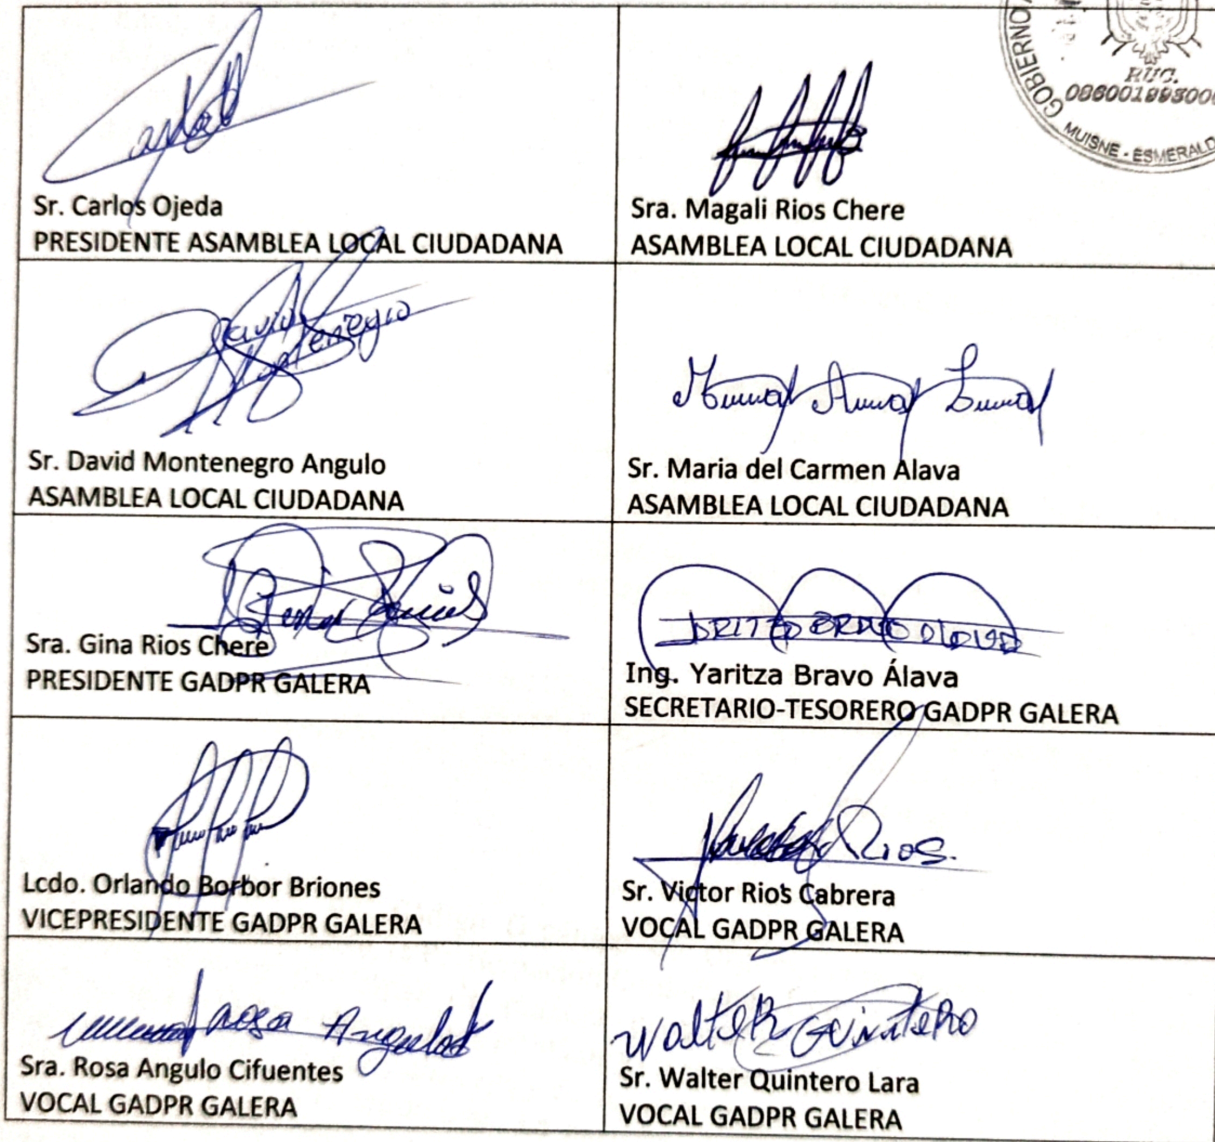 GOBIERNO
RUC.
MUISNE - ESMERALD
Sr. Carlos Ojeda
PRESIDENTE ASAMBLEA LOCAL CIUDADANA
Sra. Magali Rios Chere
ASAMBLEA LOCAL CIUDADANA
David
Montenegro
Sr. David Montenegro Angulo
ASAMBLEA LOCAL CIUDADANA
Sr. Maria del Carmen Álava
ASAMBLEA LOCAL CIUDADANA
Sra. Gina Rios Chere
PRESIDENTE GADPR GALERA
Ing. Yaritza Bravo Álava
SECRETARIO-TESORERO GADPR GALERA
Lcdo. Orlando Borbor Briones
VICEPRESIDENTE GADPR GALERA
Rios.
Sr. Victor Rios Cabrera
VOCAL GADPR GALERA
Rosa Angulo
Sra. Rosa Angulo Cifuentes
VOCAL GADPR GALERA
Walter Quintero
Sr. Walter Quintero Lara
VOCAL GADPR GALERA